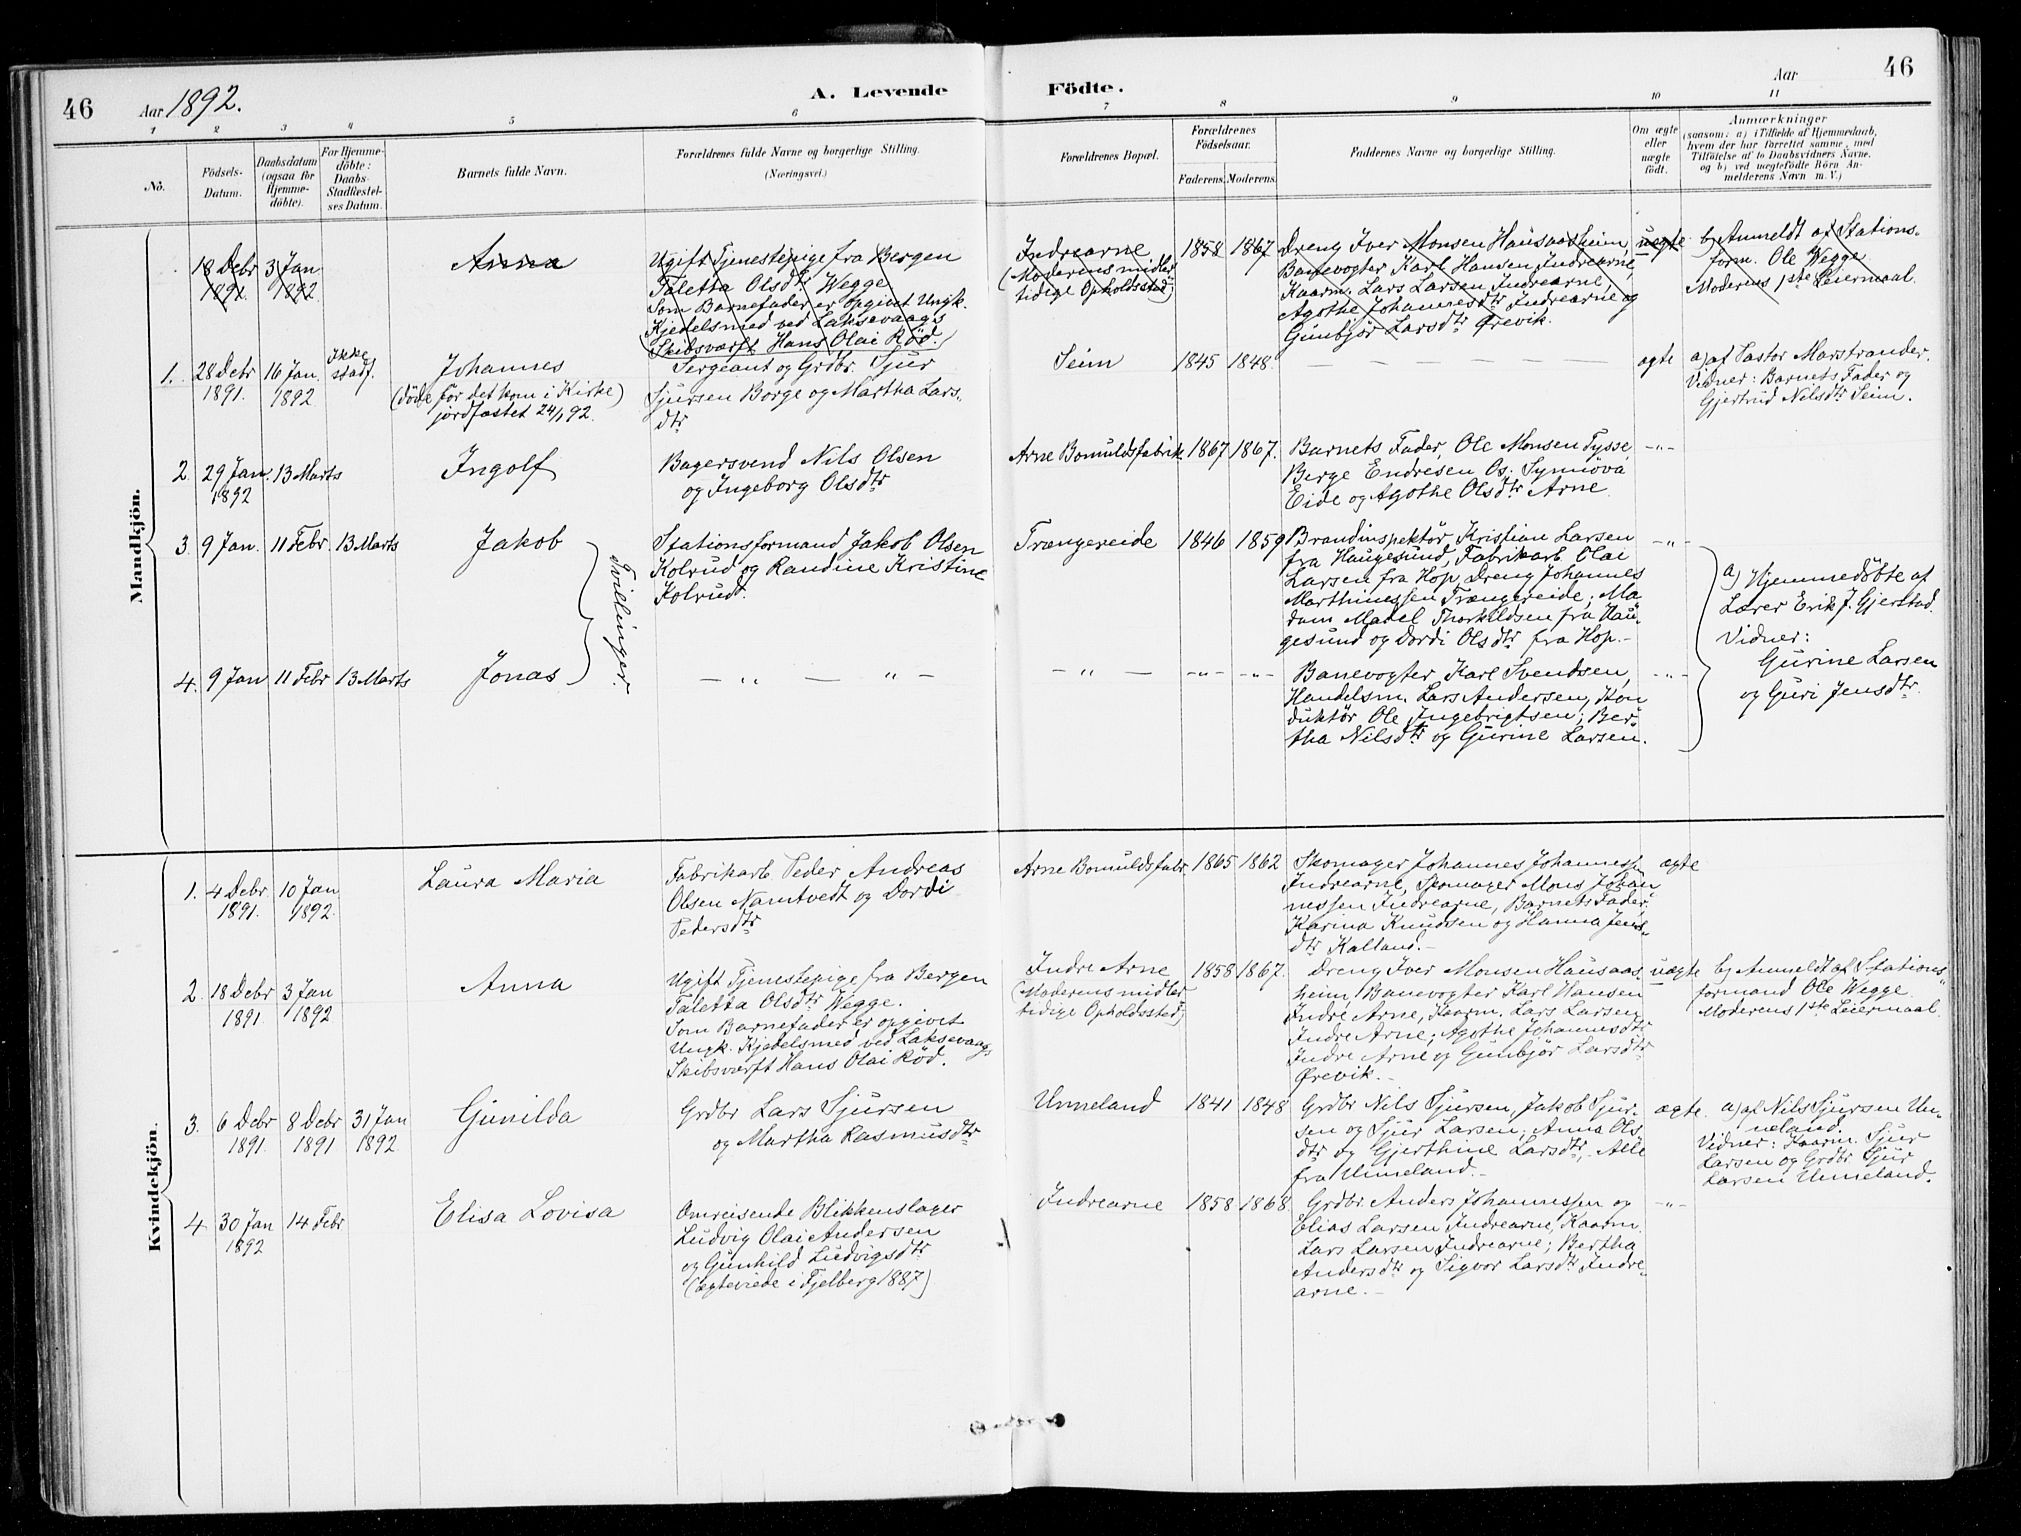 46 Aar 1892. A. Levende Födte. Aar 46
1 2 3 4 5 6 7 8 9 10 11
No.
Födsels-
Datum.
Daabsdatum
(ogsaa for
Hjemme-
döbte).
For Hjemme-
döbte:
Daabs-
Stadfæstel-
ses Datum.
Barnets fulde Navn.
Forældrenes fulde Navne og borgerlige Stilling.
(Næringsvei.)
Forældrenes Bopæl.
Forældrenes
Födselsaar.
Faderens. Moderens.
Faddernes Navne og borgerlige Stilling.
Om ægte
eller
uægte
födt.
Anmærkninger
(saasom: a) i Tilfælde af Hjemmedaab,
hvem der har forrettet samme, med
Tilföielse af to Daabsvidners Navne,
og b) ved uægtefödte Börn An-
melderens Navn m. V.)
Mandkjön.
18 Debr
1891.
3 Jan
1892
Anna
Ugift Tjenestepige fra Bergen
Taletta Olsdtr Wegge
(Som Barnefader er opgivet Ungk.
Kjedelsmed ved Laksevaags
Skibsværft Hans Olai Röd.)
Indrearne
(Moderens midler
tidige Opholdssted)
1858 1867
Dreng Iver Monsen Hausaasheim,
Banevogter Karl Hansen Indrearne
Kaarm. Lars Larsen Indrearne,
Agothe Johannesdtr Indrearne og
Gunbjør Larsdtr Ørevik.
uegte
b) Anmeldt af Stations-
form. Ole Wegge
Moderens 1ste Leiermaal.
1. 28 Debr
1891.
16 Jan.
1892
Ikke
stadf.
Johannes
(døde før det kom i Kirke)
jordfæstet 24/1 92.
Sergeant og Grdbr. Sjur
Sjursen Borge og Martha Lars-
dtr
Seim
1845 1848.
— — — — —
ægte
a) af Pastor Marstrander.
Vidner: Barnets Fader og
Gjertrud Nilsdtr Seim.
2. 29 Jan.
1892
13 Marts
Ingolf
Bagersvend Nils Olsen
og Ingeborg Olsdtr
Arne Bomuldsfabrik.
1867 1867.
Barnets Fader, Ole Monsen Tysse,
Berge Endresen Os; Synnøva
Eide og Agothe Olsdtr Arne
-"-
3. 9 Jan. 11 Febr. 13 Marts
Jakob
Tvillinger.
Stationsformand Jakob Olsen
Kolrud og Randine Kristine
Kolrud.
Trængereide
1846 1859
Brandinspektør Kristian Larsen
fra Haugesund, Fabrikarb. Olai
Larsen fra Hop, Dreng Johannes
Marthinessen Trængereide; Ma
dam Madel Thorkildsen fra Hau-
gesund og Dordi Olsdtr fra Hop.-
-"-
a) Hjemmedøbte af
Lærer Erik J. Gjerstad.
Vidner:
Gurine Larsen
og Guri Jensdtr.
4. 9 Jan 11 Febr 13 Marts
Jonas
— " — " —
— " —
-"- -"-
Banevogter Karl Svendsen,
Handelsm. Lars Andersen, Kon
duktör Ole Ingebrigtsen; Ber-
tha Nilsdtr og Gurine Larsen.
-"-
Kvindekjön.
1. 4 Debr
1891.
10 Jan
1892.
Laura Maria
Fabrikarb. Peder Andreas
Olsen Namtvedt og Dordi
Pedersdtr
Arne Bomuldsfabr.
1865 1862
Skomager Johannes Johannessen
Indrearne, Skomager Mons Johan
nessen Indrearne, Barnets Fader;
Karina Knudsen og Hanna Jens-
dtr Kalland.-
ægte
2. 18 Debr
1891
3 Jan
1892
Anna
Ugift Tjenestepige fra Bergen
Taletta Olsdtr Wegge.
Som Barnefader er opgivet
Ungk. Kjedelsmed ved Laksevaags
Skibsværft Hans Olai Röd.
Indre Arne
(Moderens midler
tidige Opholdssted)
1858 1867.
Dreng Iver Monsen Hausaas
heim, Banevogter Karl Hansen
Indre Arne, Kaarm. Lars Larsen
Indre Arne; Agothe Johannesdtr
Indre Arne og Gunbjør Larsdtr
Ørevik.-
uægte
b) Anmeldt af Stations-
formand Ole Wegge
Moderens 1ste Leiermaal.
3. 6 Debr
1891.
8 Debr
1891
31 Jan
1892.
Gunilda
Grdbr Lars Sjursen
og Martha Rasmusdtr
Unneland
1841 1848
Grdbr Nils Sjursen, Jakob Sjur-
sen og Sjur Larsen; Anna Ols
dtr og Gjerthine Larsdtr, Alle
fra Unneland.-
ægte.
a) af Nils Sjursen Un-
neland.
Vidner: Kaarm. Sjur
Larsen og Grdbr Sjur
Larsen Unneland.
4. 30 Jan
1892
14 Febr
Elisa Lovisa
Omreisende Blikkenslager
Ludvig Olai Andersen
og Gunhild Ludvigsdtr
(ægteviede i Fjelberg 1887)
Indrearne
1858 1868.
Grdbr Anders Johannessen og
Elias Larsen Indrearne, Kaarm.
Lars Larsen Indrearne; Bertha
Andersdtr og Sigvor Larsdtr Indre-
arne.-
-"-